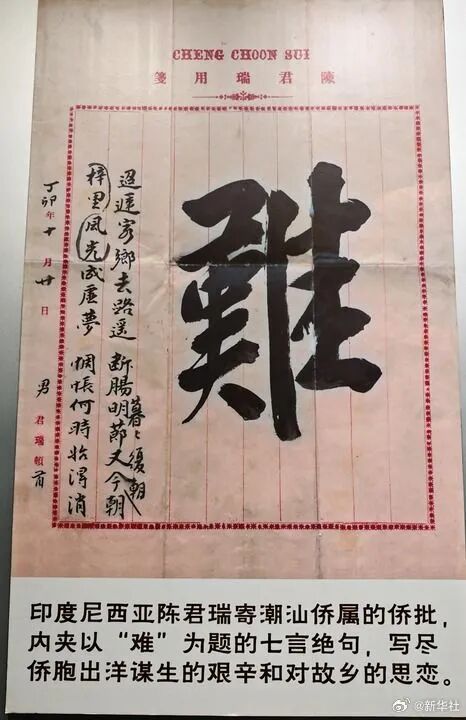 CHENG CHOON SUI
陳君瑞用箋
難
迢遞家鄉去路遥 斷腸明節又今朝
暮〻復朝
梓里風光成虛夢 惆悵何時始得消
丁卯年十月廿日 男 君瑞頓首
印度尼西亚陈君瑞寄潮汕侨属的侨批，
内夹以“难”为题的七言绝句，写尽
侨胞出洋谋生的艰辛和对故乡的思恋。
@新华社